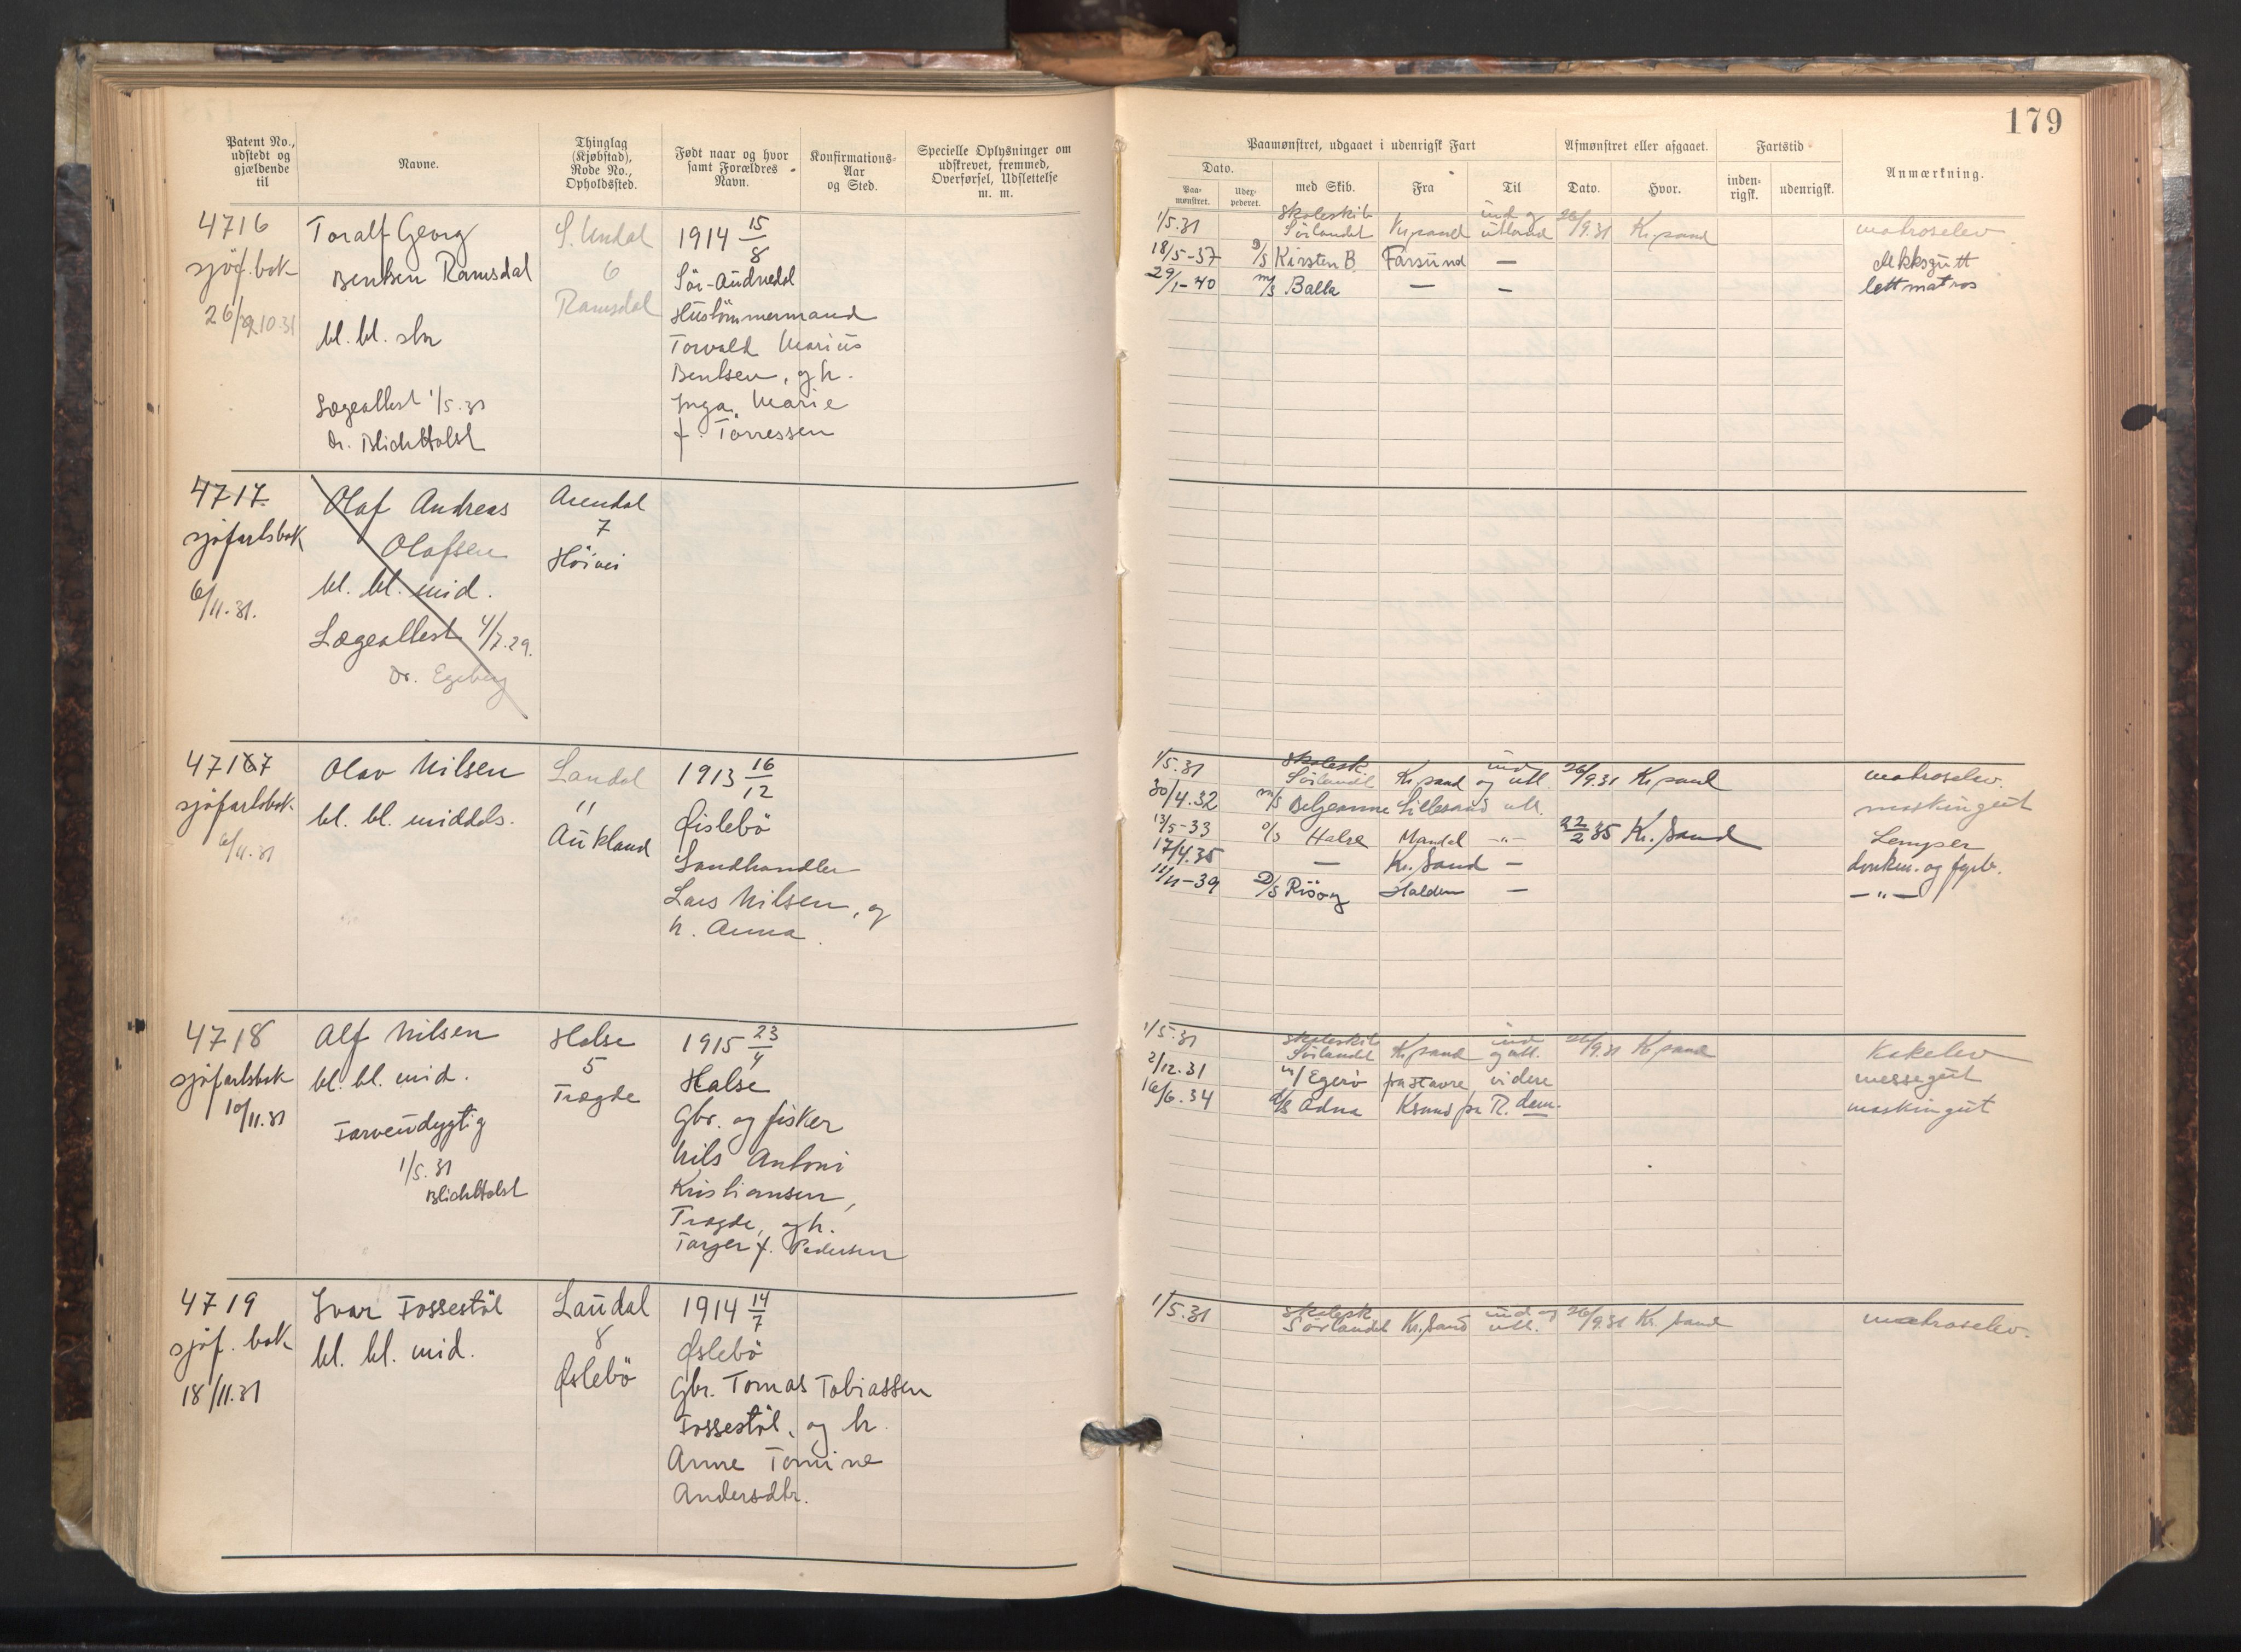 179
Patent No., udstedt og gjældende til
Navne.
Thinglag (Kjøbstad), Rode No., Opholdssted.
Født naar og hvor samt Forældres Navn.
Konfirmations-Aar og Sted.
Specielle Oplysninger om udskrevet, fremmed, Overførsel, Udslettelse m. m.
Paamønstret, udgaaet i udenrigsk Fart
Afmønstret eller afgaaet.
Fartstid
Anmærkning.
Dato.
Paa-mønstret.
med Skib.
Fra
Til
Dato.
Hvor.
inden-rigsk.
udenrigsk.
4716
sjöf. bok
Toralf Georg
Bentsen Ramsdal
bl. bl. str
Lægeattest 1/5.31
Dr. Blichholst
S. Undal
6
Ramsdal
1914 15/8
Sör-Audnedal
Hustömmermand
Torvald Marius
Bentsen, og h.
Inga Marie
f. Törressen
1/5.31 Skoleskib Sörlandet Kr.sand ind og utland 26/9.31 Kr.sand matroselev
18/5-37 D/S Kirsten B. Farsund — dekksgutt
29/1-40 M/S Balla — — lettmatros
4717
sjöfartsbok
6/11.31.
Olaf Andreas
Olafsen
bl. bl. mid.
Lægeattest 4/7.29.
Dr. Egeberg
Arendal
7
Höivei
47167
sjöfartsbok
6/11.31
Olav Nilsen
bl. bl. middels.
Laudal
11
Aukland
1913 16/12
Øislebö
Landhandler
Lars Nilsen, og
h. Anna
1/5.31 Skolesk. Sörlandet Kr.sand ind og utl. 26/9.31 Kr.sand matroselev.
30/4.32 M/S Beljeanne Lillesand utl. maskingut
13/5-33 D/S Halse Mandal -"- 22/2 35 Kr. Sand Lemper
17/4.35 — Kr. Sand — donkm. og fyrb.
11/11-39 D/S Risöy Halden — —"—
4718
sjöfartsbok
10/11.31
Alf Nilsen
bl. bl. mid.
Farveudygtig
1/5.31
Blichholst
Halse
5
Tregde
1915 23/4
Halse
Gbr. og fisker
Nils Antoni
Kristiansen,
Tregde, og h.
Torger f. Pedersen
1/5.31 Skoleskib Sörlandet Kr.sand ind og utl. 26/9.31 Kr.sand Kokelev
2/12.31 Egerö videre messegut
16/6.34 D/S Odna maskingut
4719
sjöf. bok
18/11.31
Ivar Fossestöl
bl. bl. mid.
Laudal
8
Øslebö
1914 14/7
Øslebö
Gbr. Tomas Tobiassen
Fossestöl, og h.
Anne Tomine
Andersdtr.
1/5.31 Skolesk Sörlandet Kr. Sand ind og utl. 26/9.31 Kr. Sand matroselev.